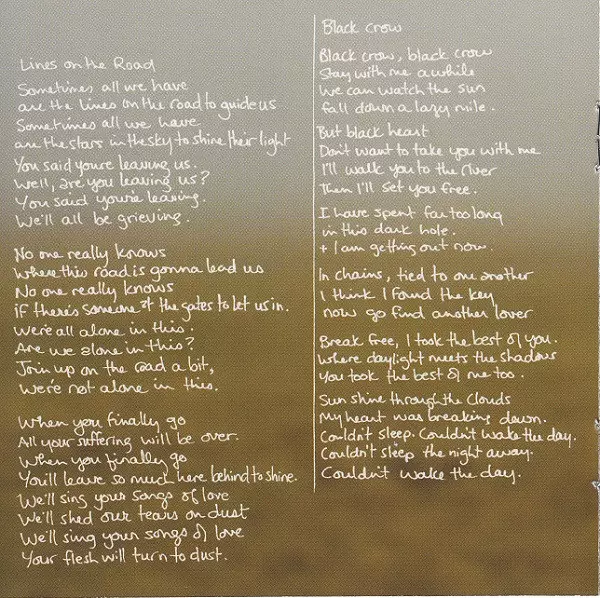 Lines on the Road
Sometimes all we have
are the lines on the road to guide us
Sometimes all we have
are the stars in the sky to shine their light
You said you're leaving us.
Well, are you leaving us?
You said you're leaving.
We'll all be grieving.
No one really knows
Where this road is gonna lead us
No one really knows
if there's someone at the gates to let us in.
We're all alone in this.
Are we alone in this?
Join up on the road a bit,
We're not alone in this.
When you finally go
All your suffering will be over.
When you finally go
You'll leave so much here behind to shine.
We'll sing your songs of love
We'll shed our tears on dust
We'll sing your songs of love
Your flesh will turn to dust.
Black Crow
Black crow, black crow
Stay with me awhile
We can watch the sun
fall down a lazy mile.
But black heart
Don't want to take you with me
I'll walk you to the river
Then I'll set you free.
I have spent far too long
in this dark hole.
+ I am getting out now.
In chains, tied to one another
I think I found the key
now go find another lover
Break free, I took the best of you.
Where daylight meets the shadows
You took the best of me too.
Sun shine through the clouds
My heart was breaking down.
Couldn't sleep. Couldn't wake the day.
Couldn't sleep the night away.
Couldn't wake the day.